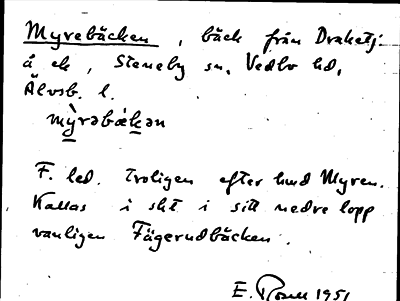 Myrebäcken, bäck från Draketj.
å ek, Steneby sn, Vedbo hd,
Älvsb. l.
mỳrəbæ̀kən
F. led. Troligen efter hmd Myren.
Kallas i sht i sitt nedre lopp
vanligen Fägerudbäcken.
E. 1951